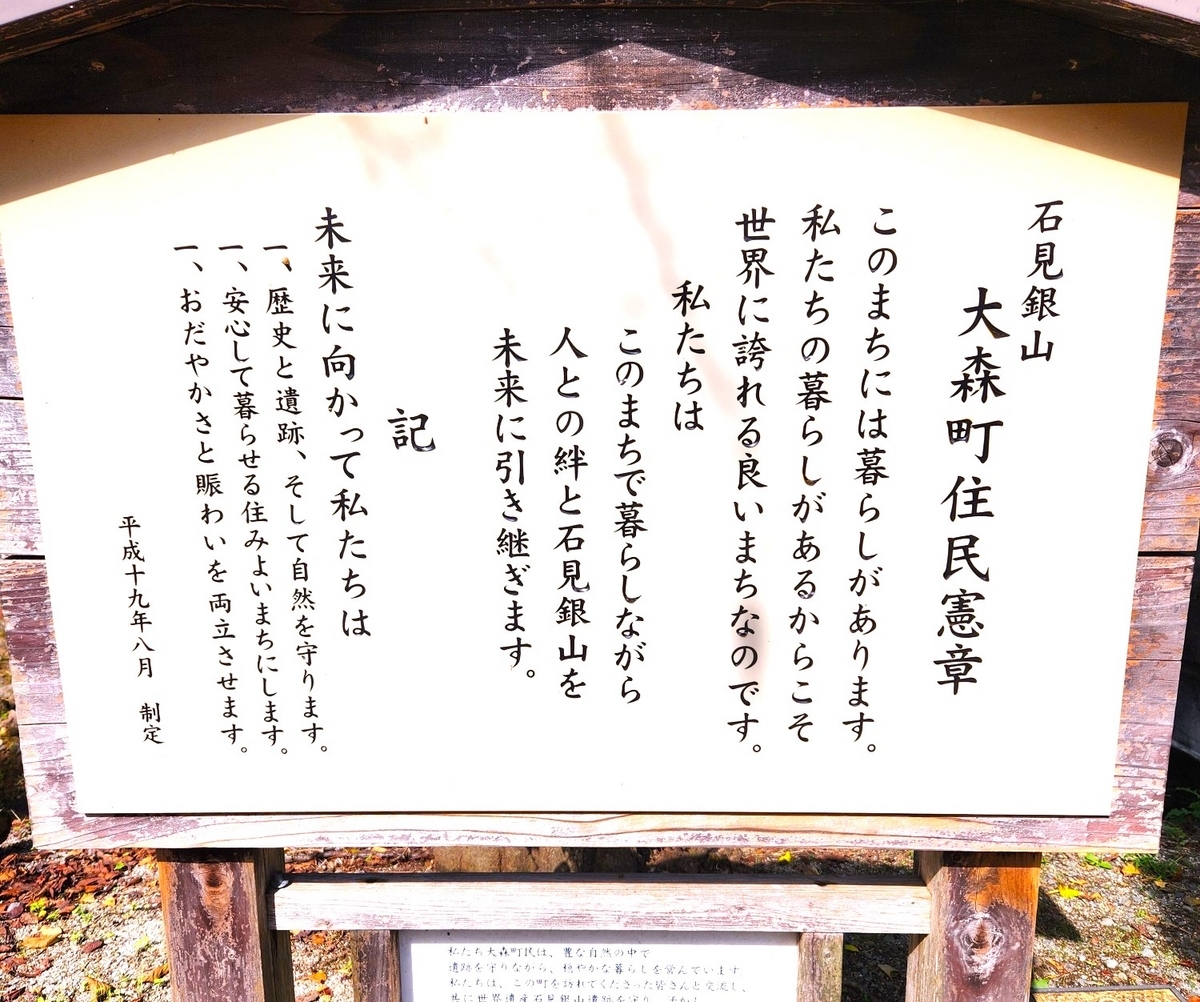 石見銀山
大森町住民憲章
このまちには暮らしがあります。
私たちの暮らしがあるからこそ
世界に誇れる良いまちなのです。
私たちは
このまちで暮らしながら
人との絆と石見銀山を
未来に引き継ぎます。
記
未来に向かって私たちは
一、歴史と遺跡、そして自然を守ります。
一、安心して暮らせる住みよいまちにします。
一、おだやかさと賑わいを両立させます。
平成十九年八月 制定
私たち大森町民は、豊な自然の中で
遺跡を守りながら、穏やかな暮らしを営んでいます
私たちは、この町を訪れてくださった皆さんと交流し、
共に世界遺産石見銀山遺跡を守り、